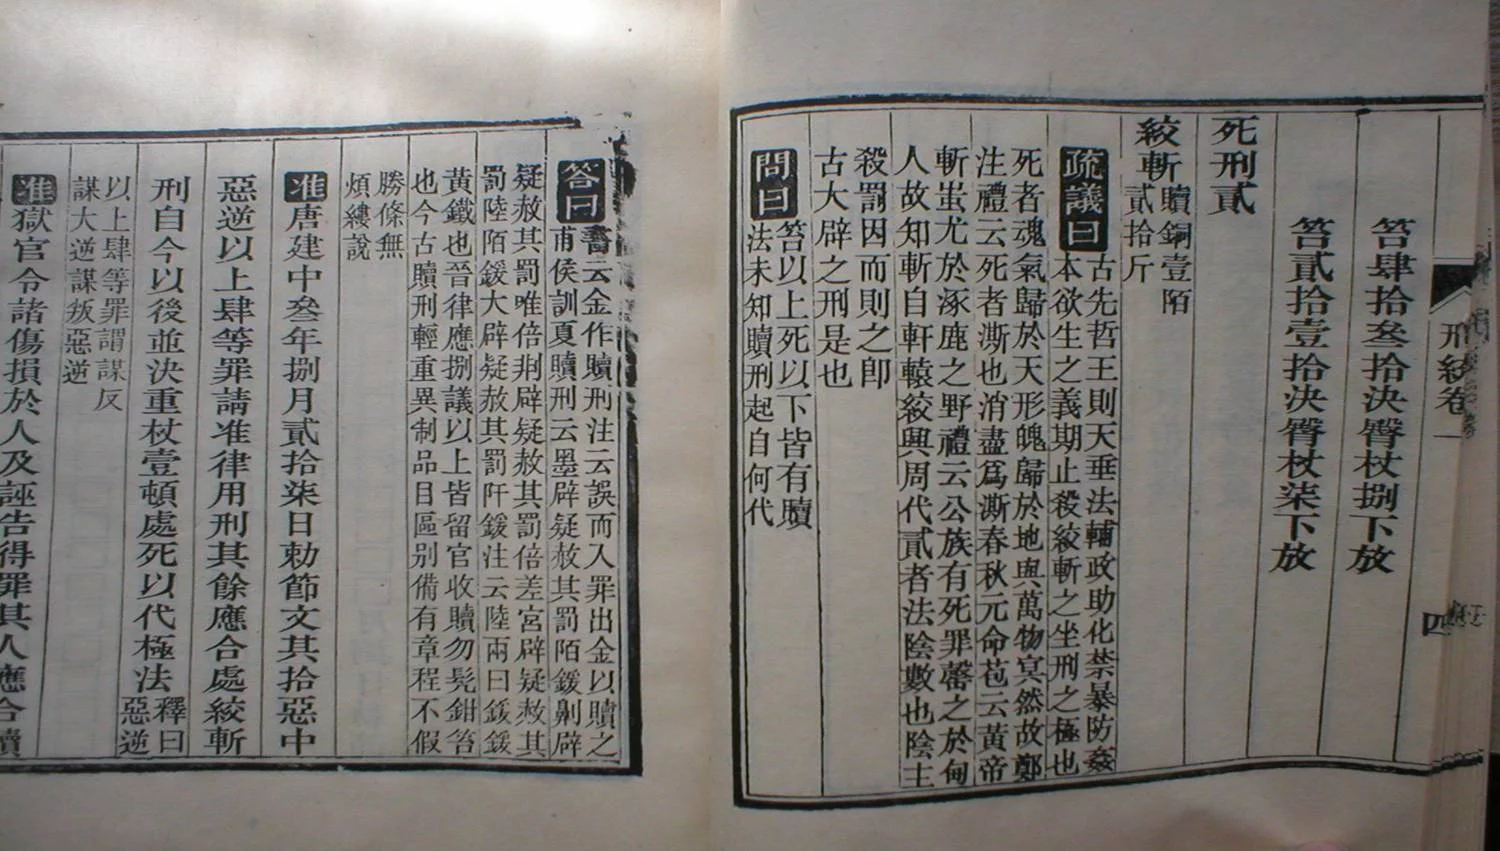 笞肆拾叁拾決臀杖捌下放
笞貳拾壹拾決臀杖柒下放
死刑貳
絞斬
贖銅壹陌
貳拾斤
疏議曰
古先哲王則天垂法輔政助化禁暴防姦
本欲生之義期止殺絞斬之坐刑之極也
死者魂氣歸於天形魄歸於地與萬物冥然故鄭
注禮云死者澌也消盡爲澌春秋元命苞云黃帝
斬蚩尤於涿鹿之野禮云公族有死罪罄之於甸
人故知斬自軒轅絞興周代貳者法陰數也陰主
殺罰因而則之即
古大辟之刑是也
問曰
笞以上死以下皆有贖
法未知贖刑起自何代
刑統卷一
四
答曰
書云金作贖刑注云誤而入罪出金以贖之
甫侯訓夏贖刑云墨辟疑赦其罰陌鍰劓辟
疑赦其罰唯倍剕辟疑赦其罰倍差宮辟疑赦其
罰陸陌鍰大辟疑赦其罰阡鍰注云陸兩曰鍰鍰
黃鐵也晉律應捌議以上皆留官收贖勿髡鉗笞
也今古贖刑輕重異制品目區別備有章程不假
勝條無
煩縷說
准唐建中叁年捌月貳拾柒日勅節文其拾惡中
惡逆以上肆等罪請准律用刑其餘應合處絞斬
刑自今以後並決重杖壹頓處死以代極法
釋曰
惡逆
以上肆等罪謂謀反
謀大逆謀叛惡逆
准獄官令諸傷損於人及誣告得罪其人應合贖